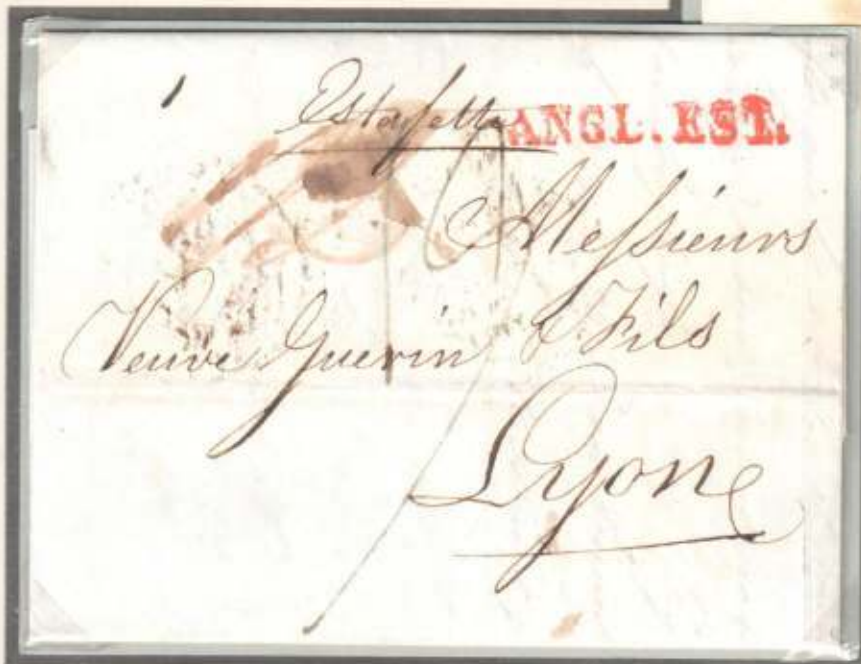 Estafette
ANGL. EST.
Messieurs
Veuve Guerin & Fils
Lyon